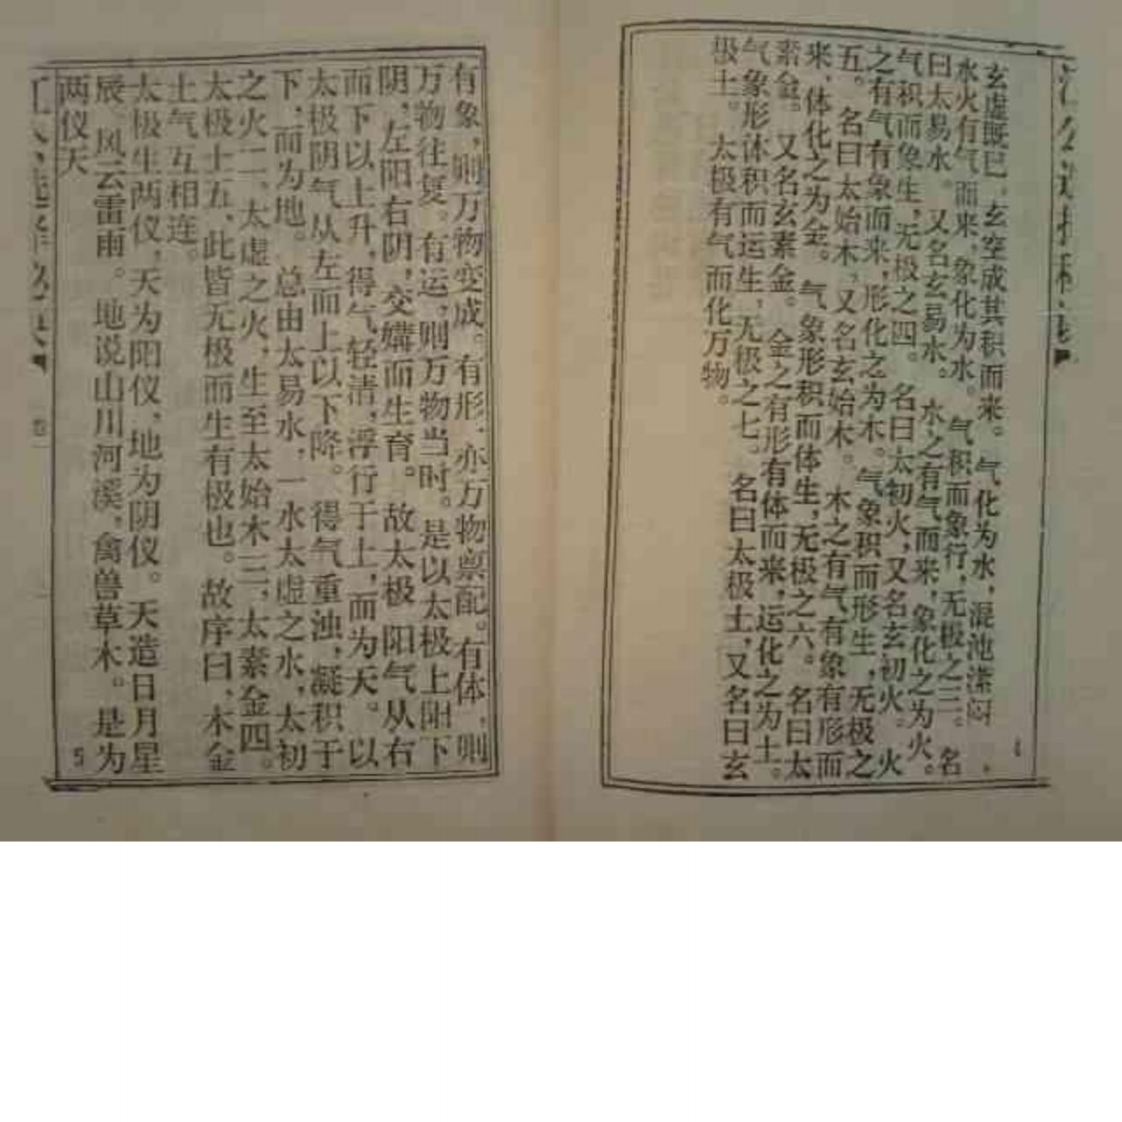 玄虚既已，玄空成其积而来。气化为水，混沌潆闷
水火有气而来，象化为水。气积而象行，无极之三。名
曰太易水。又名玄易水。水之有气而来，象化之为火。
气积而象生，无极之四。名曰太初火，又名玄初火。火
之有气有象而来，形化之为木。气象积而形生，无极之
五。名曰太始木，又名玄始木。木之有气有象有形而
来，体化之为金。气象形积而体生，无极之六。名曰太
素金。又名玄素金。金之有形有体而来，运化之为土。
气象形体积而运生，无极之七。名曰太极土，又名曰玄
极土。太极有气而化万物。
4
有象，则万物变成。有形，亦万物禀配。有体，则
万物往复。有运，则万物当时。是以太极上阳下
阴，左阳右阴，交媾而生育。故太极阳气从右
而下以上升，得气轻清，浮行于上，而为天。以
太极阴气从左而上以下降。得气重浊，凝积于
下，而为地。总由太易水，一水太虚之水，太初
之火二，太虚之火，生至太始木三，太素金四。
太极土五，此皆无极而生有极也。故序曰，木金
土气互相连。
太极生两仪，天为阳仪，地为阴仪。天造日月星
辰。风云雷雨。地说山川河溪，禽兽草木。是为
两仪天
5